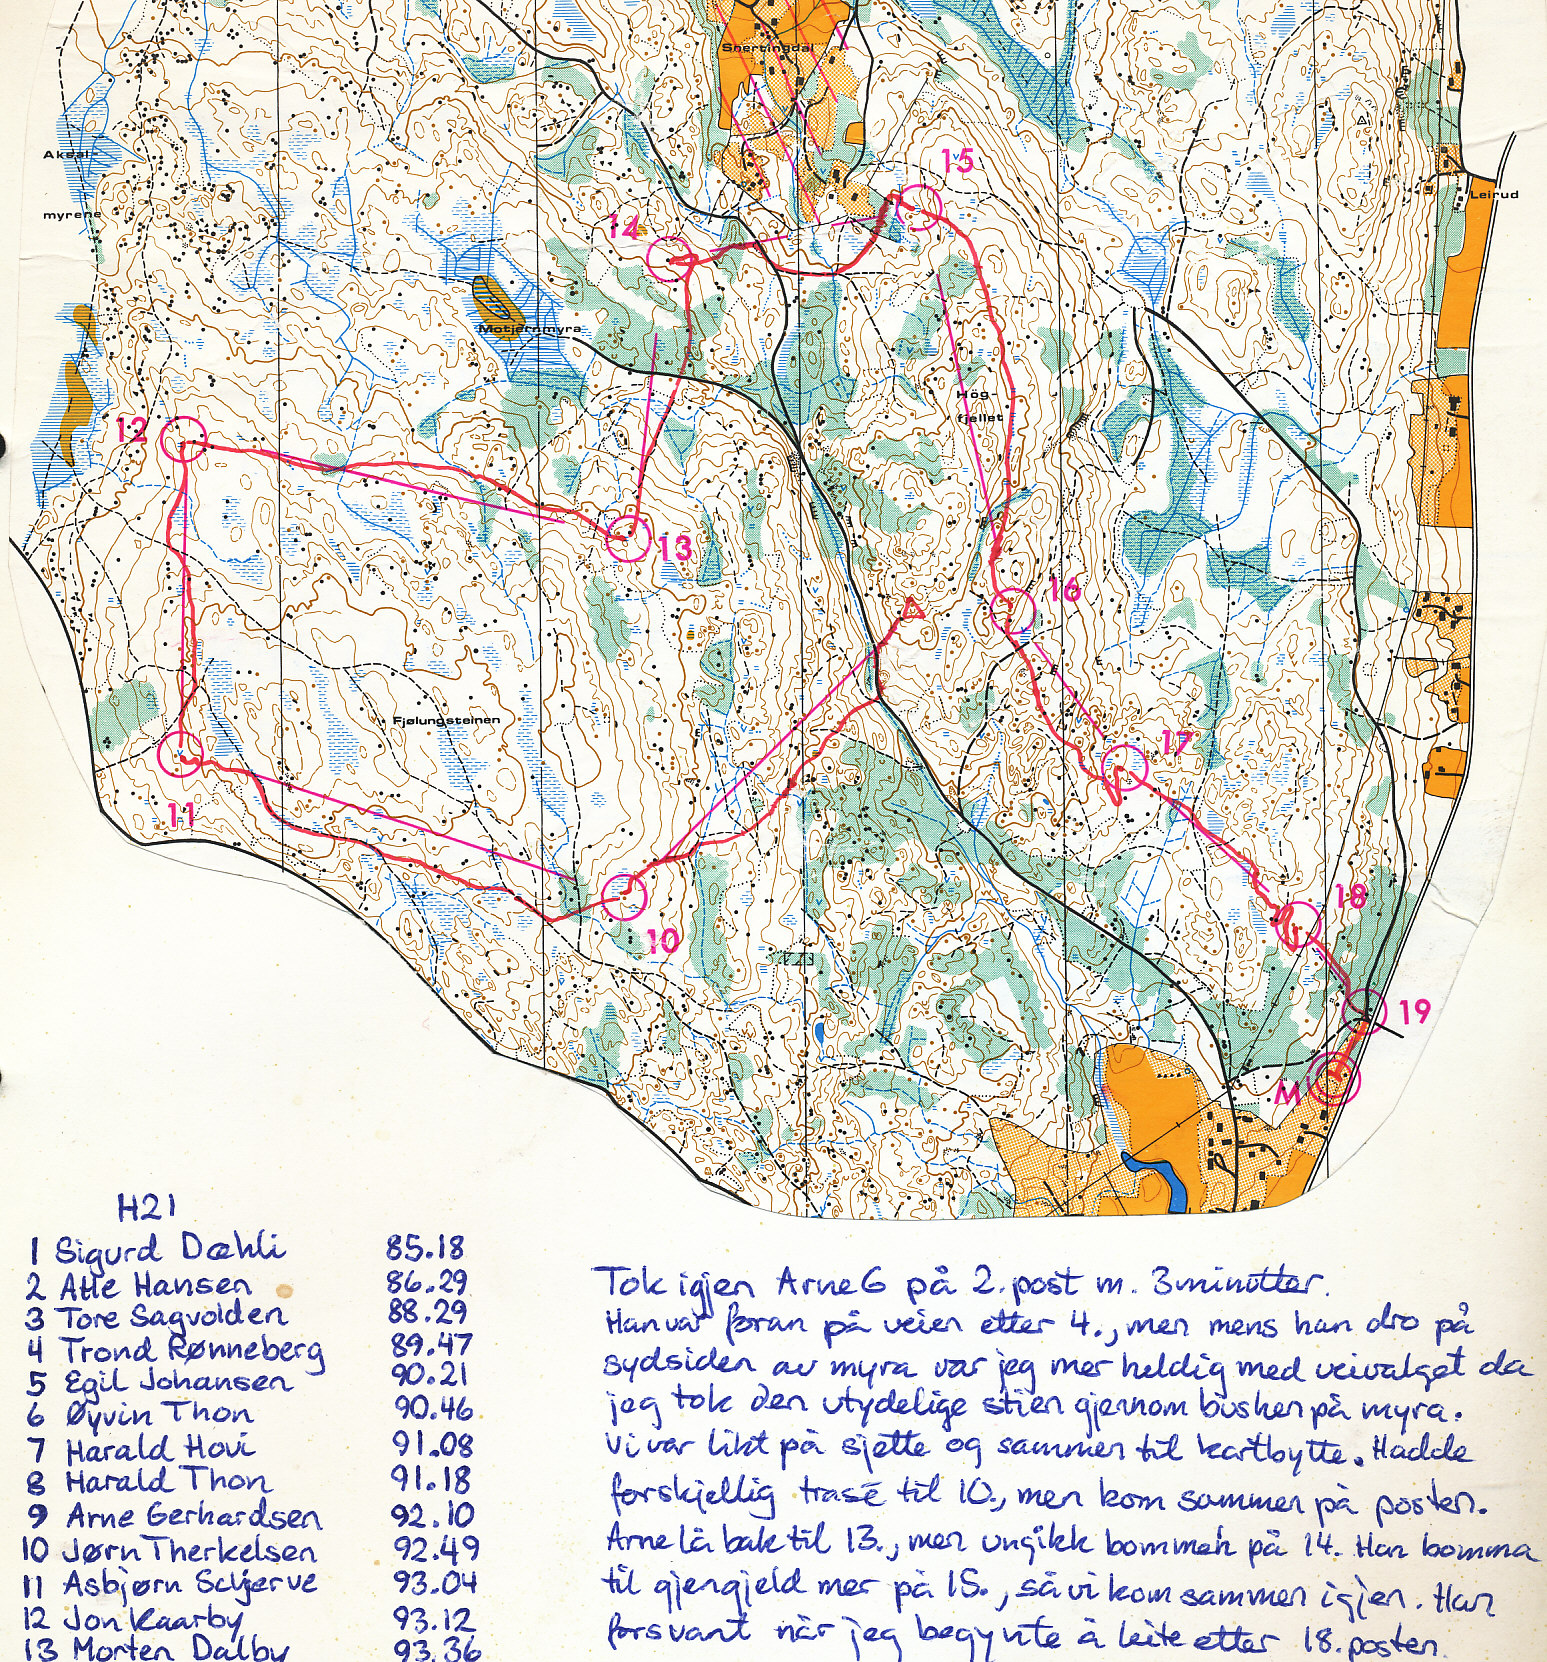 Snertingdal
15
Aksal-
myrene
Leirud
14
Motjernmyra
Høg-
fjellet
12
13
16
Fjølungsteinen
17
11
18
10
19
M
H21
1 Sigurd Dæhli 85.18
2 Atle Hansen 86.29
3 Tore Sagvolden 88.29
4 Trond Rønneberg 89.47
5 Egil Johansen 90.21
6 Øyvin Thon 90.46
7 Harald Hovi 91.08
8 Harald Thon 91.18
9 Arne Gerhardsen 92.10
10 Jørn Therkelsen 92.49
11 Asbjørn Schjerve 93.04
12 Jon Kaarby 93.12
13 Morten Dalby 93.36
Tok igjen Arne G på 2. post m. 3 minutter.
Han var foran på veien etter 4., men mens han dro på
sydsiden av myra var jeg mer heldig med veivalget da
jeg tok den utydelige stien gjennom busken på myra.
Vi var likt på sjette og sammen til kartbytte. Hadde
forskjellig trasé til 10., men kom sammen på posten.
Arne lå bak til 13., men ungikk bommen på 14. Han bomma
til gjengjeld mer på 15., så vi kom sammen igjen. Han
forsvant når jeg begynte å leite etter 18. posten.